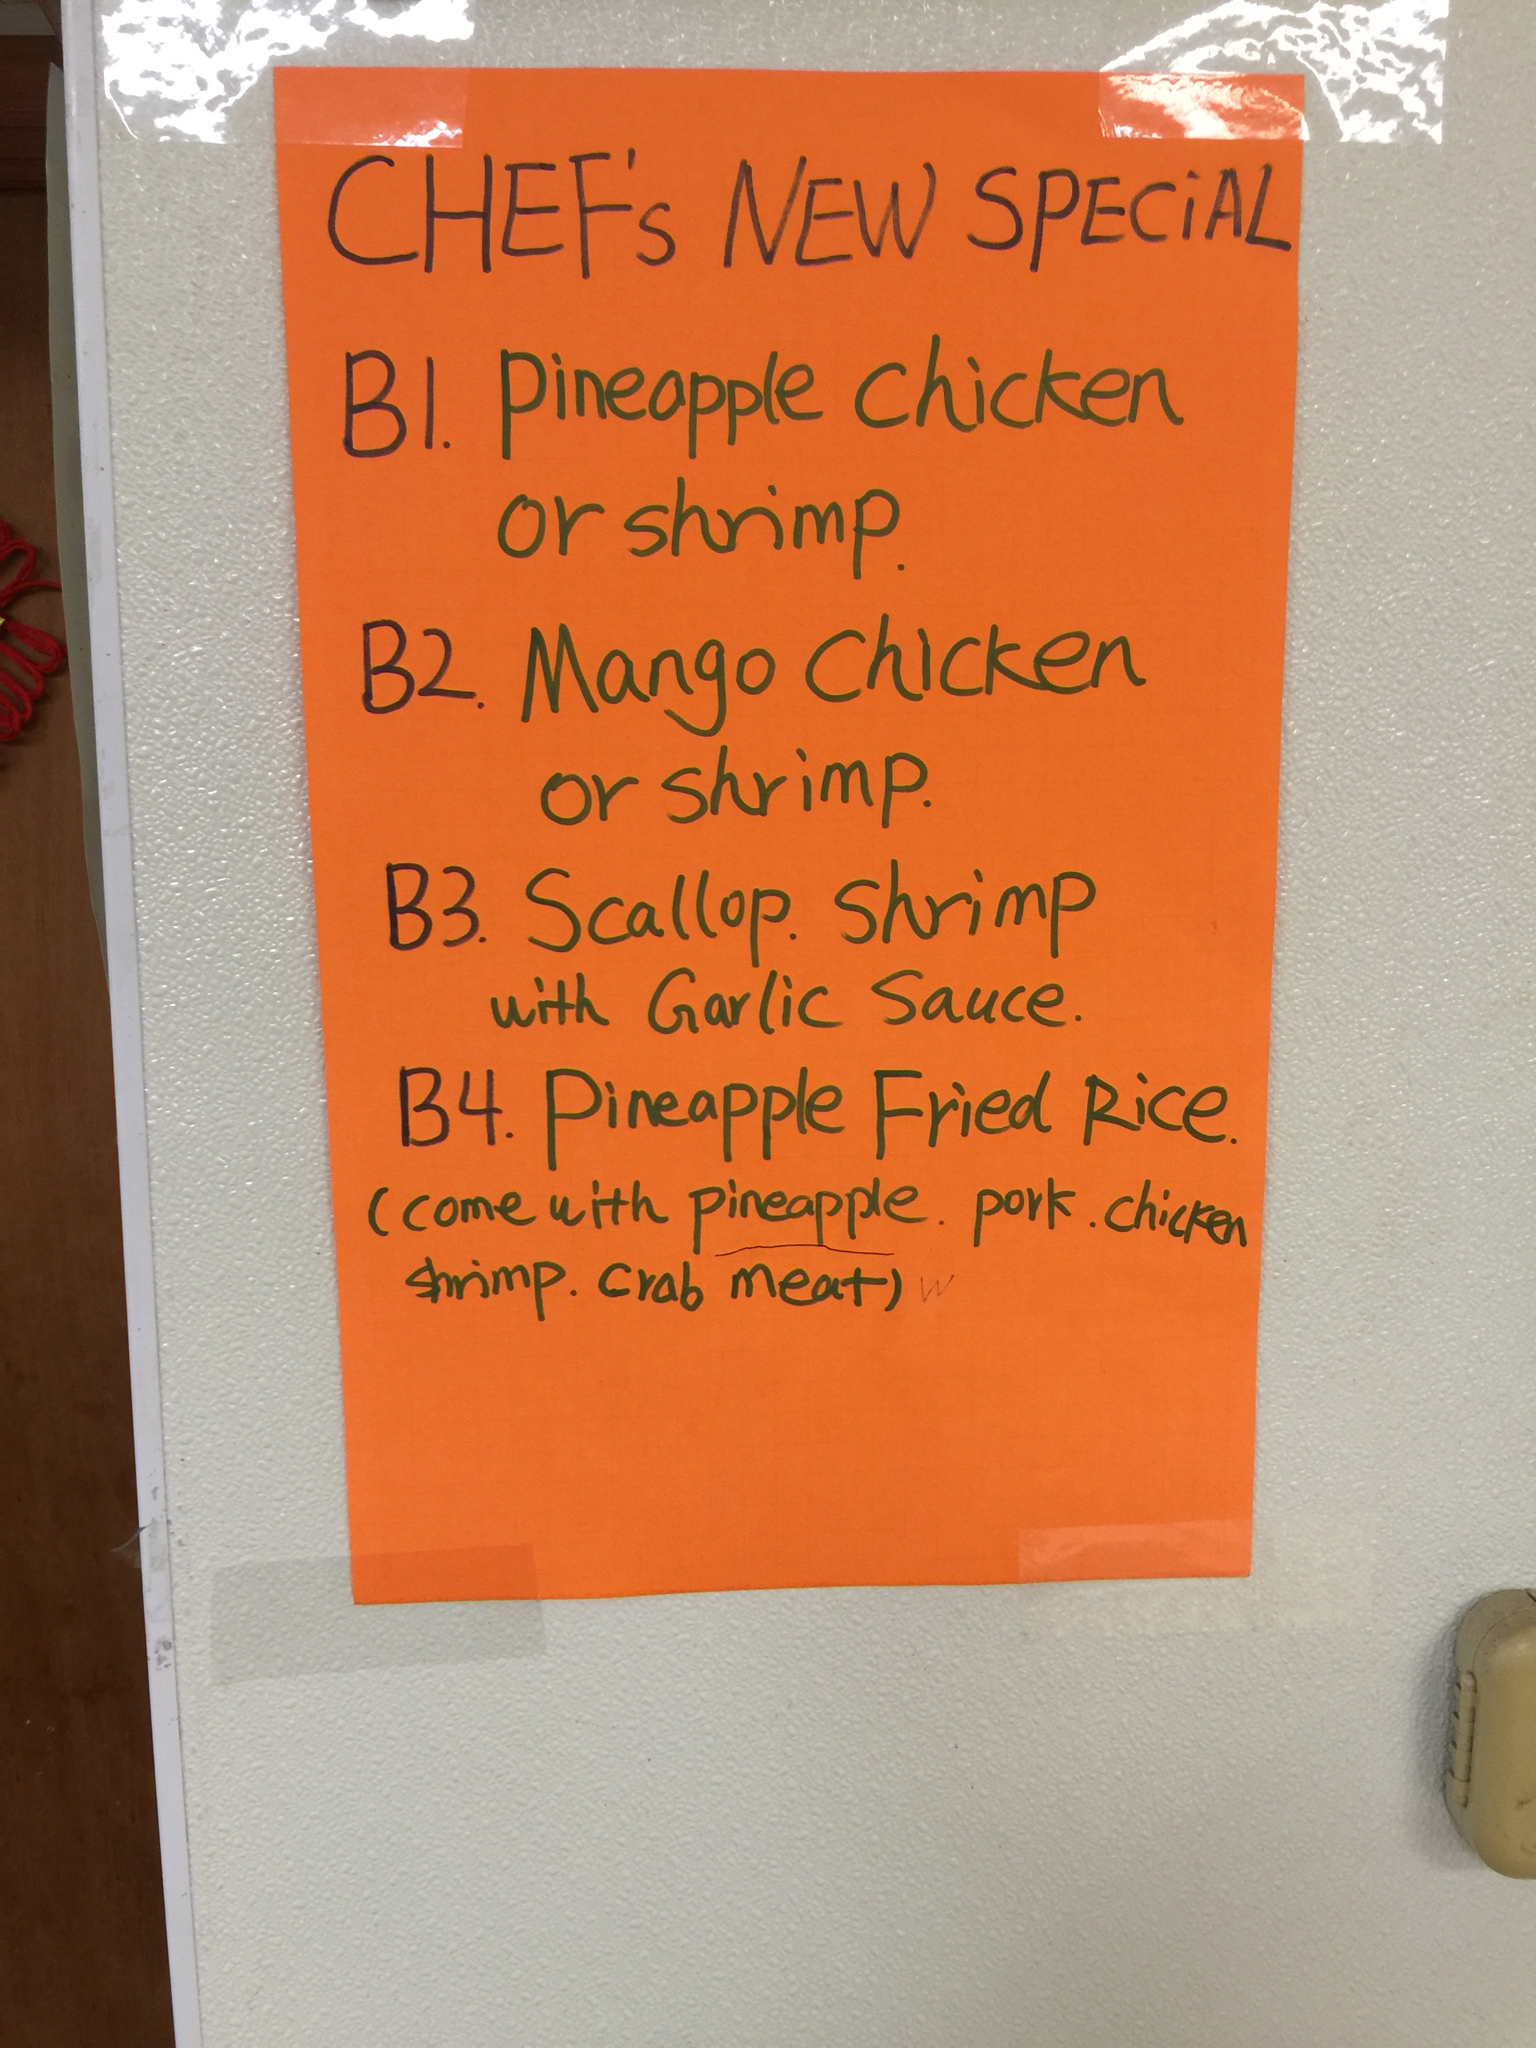 CHEF's NEW SPECiAL
B1. Pineapple chicken
or shrimp.
B2. Mango chicken
or shrimp.
B3. Scallop. shrimp
with Garlic Sauce.
B4. Pineapple Fried Rice.
(come with pineapple. pork. chicken
shrimp. crab meat) W